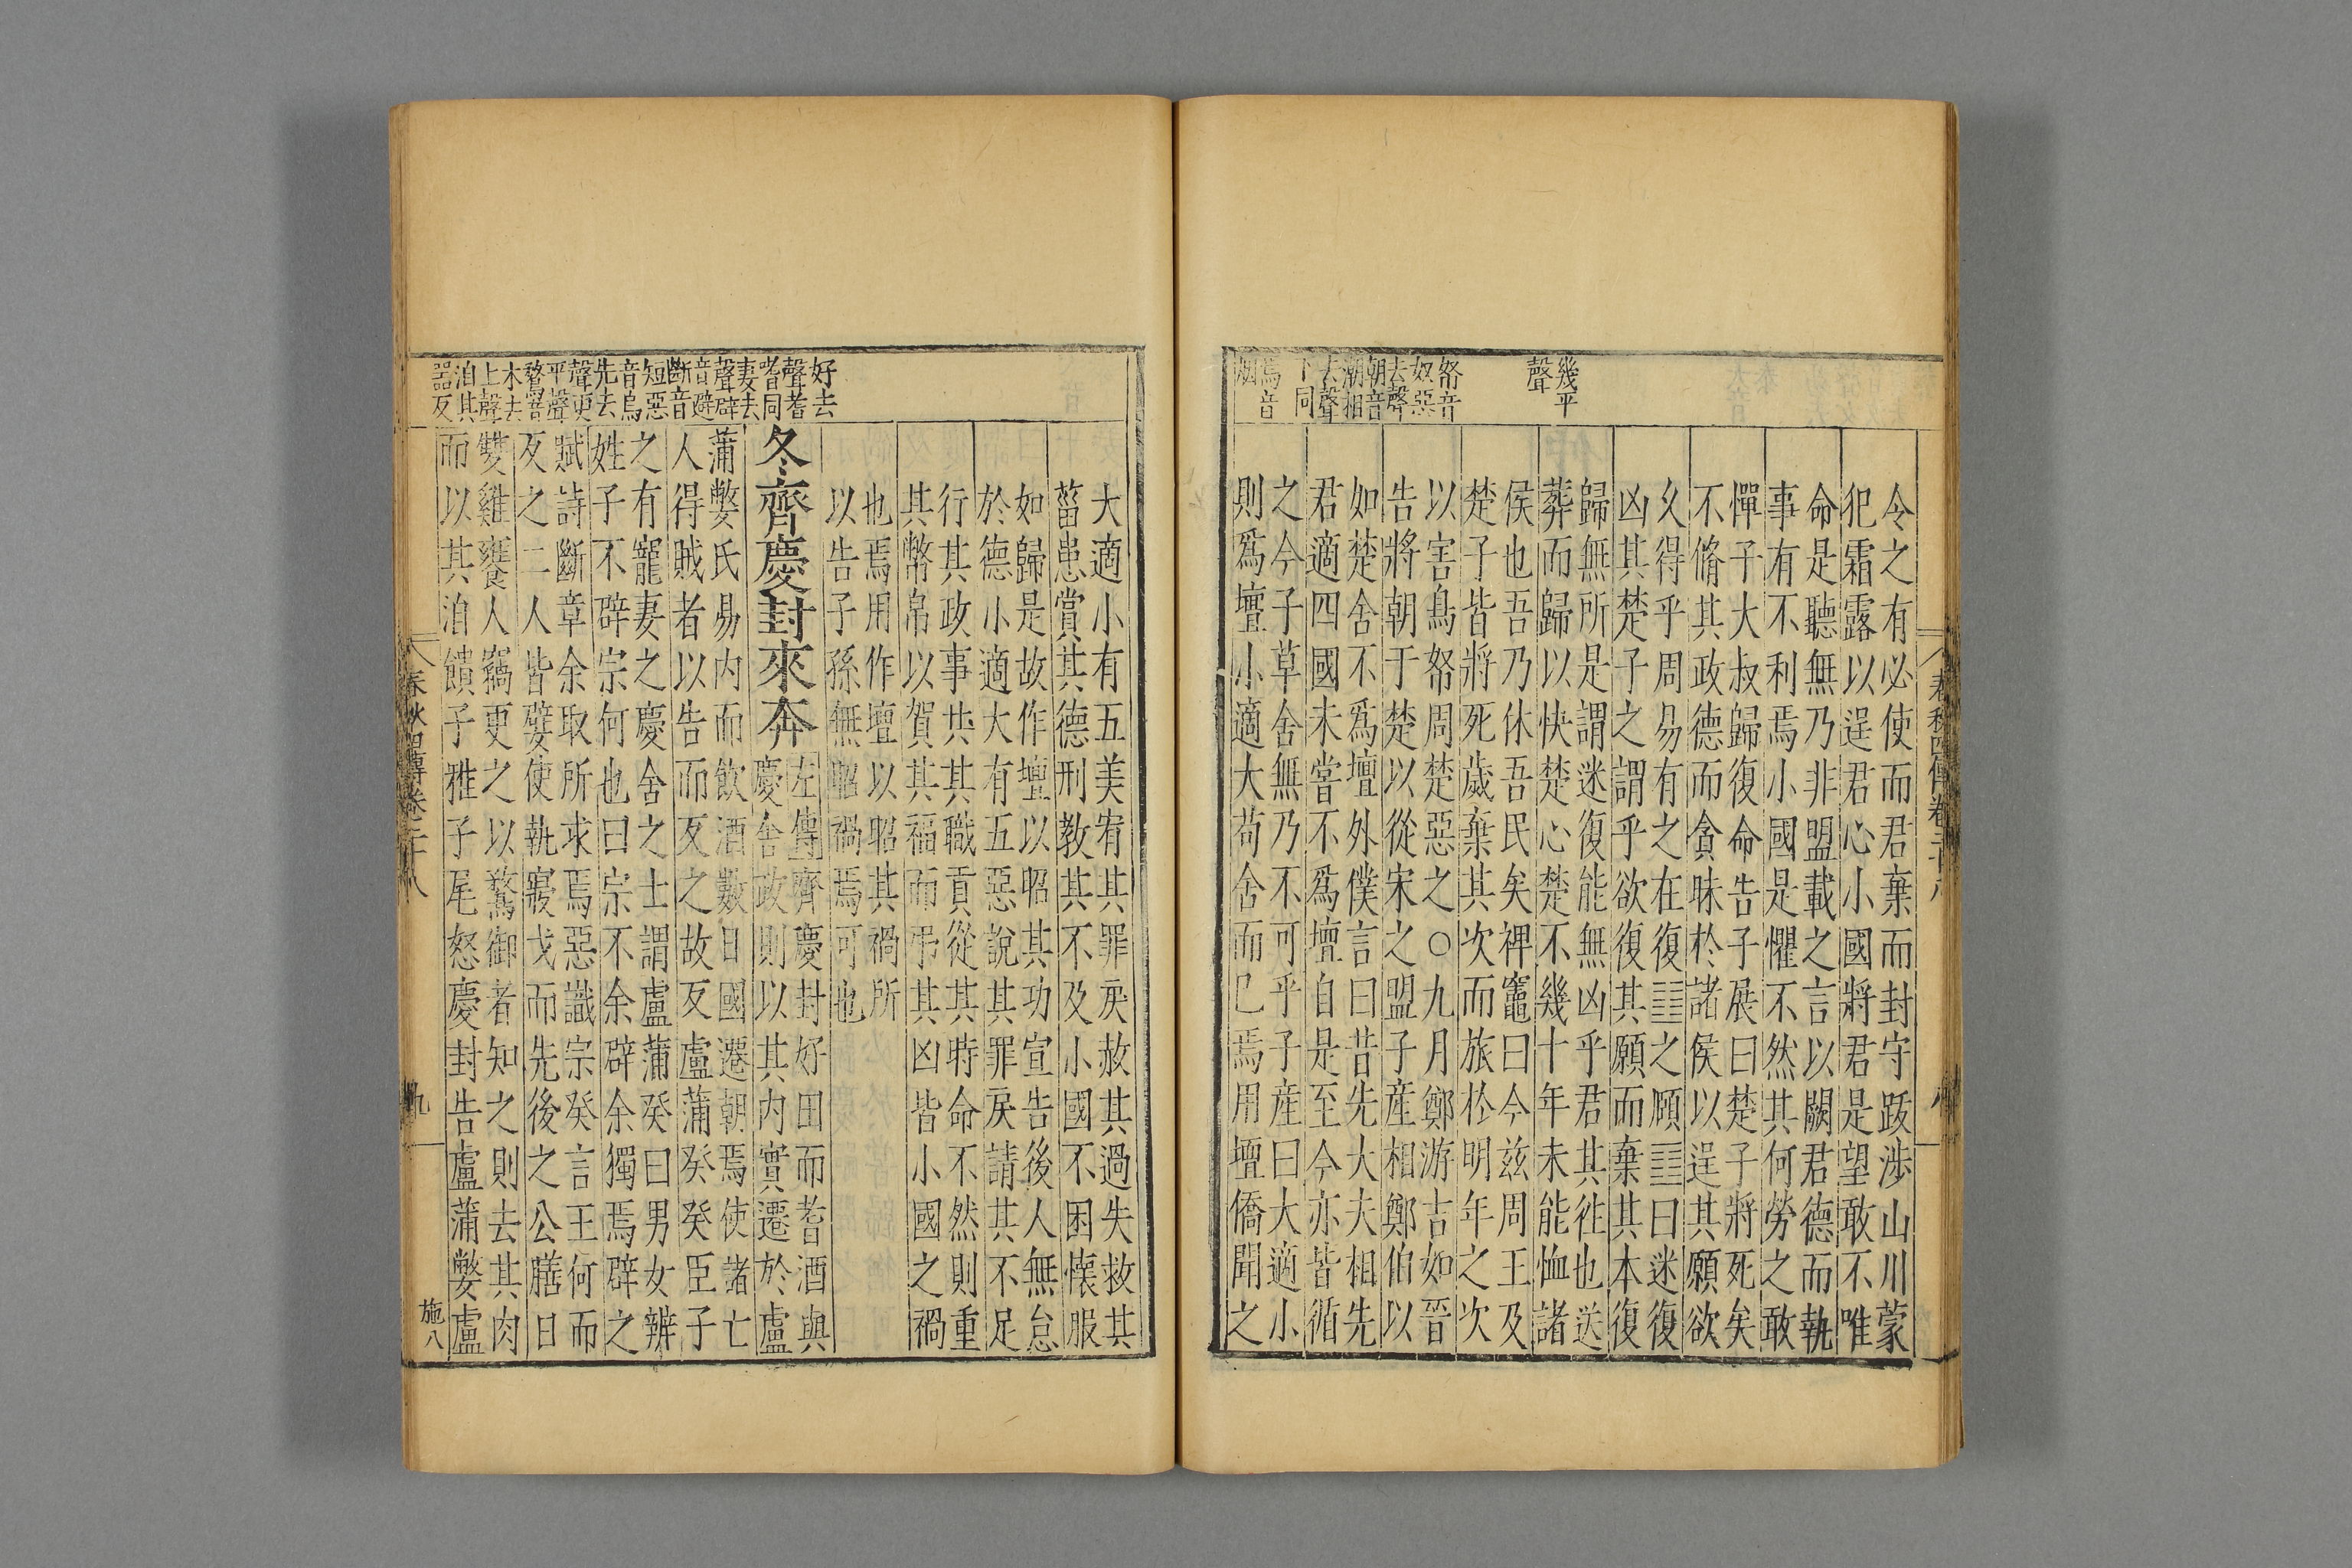 春秋四傳卷二十八
八
幾平
聲
帑音
奴惡
去聲
朝音
潮相
去聲
下同
焉音
烟
令之有必使而君棄而封守跋涉山川蒙
犯霜露以逞君心小國將君是望敢不唯
命是聽無乃非盟載之言以闕君德而執
事有不利焉小國是懼不然其何勞之敢
憚子大叔歸復命告子展曰楚子將死矣
不脩其政德而貪昧於諸侯以逞其願欲
久得乎周易有之在復䷗之頤䷚曰迷復
凶其楚子之謂乎欲復其願而棄其本復
歸無所是謂迷復能無凶乎君其徃也送
葬而歸以快楚心楚不幾十年未能恤諸
侯也吾乃休吾民矣裨竈曰今兹周王及
楚子皆將死歲棄其次而旅於明年之次
以害鳥帑周楚惡之○九月鄭游吉如晉
告將朝于楚以從宋之盟子產相鄭伯以
如楚舍不爲壇外僕言曰昔先大夫相先
君適四國未嘗不爲壇自是至今亦皆循
之今子草舍無乃不可乎子產曰大適小
則爲壇小適大苟舍而已焉用壇僑聞之
大適小有五美宥其罪戾赦其過失救其
菑患賞其德刑教其不及小國不困懷服
如歸是故作壇以昭其功宣告後人無怠
於德小適大有五惡說其罪戾請其不足
行其政事共其職貢從其時命不然則重
其幣帛以賀其福而弔其凶皆小國之禍
也焉用作壇以昭其禍所
以告子孫無昭禍焉可也
好去
聲耆
嗜同
妻去
聲辟
音避
斷音
短惡
音烏
先去
聲更
平聲
鶩音
木去
上聲
洎其
器反
冬齊慶封來奔
左傳齊慶封好田而耆酒與
慶舍政則以其内實遷於盧
蒲嫳氏易内而飲酒數日國遷朝焉使諸亡
人得賊者以告而反之故反盧蒲癸癸臣子
之有寵妻之慶舍之士謂盧蒲癸曰男女辨
姓子不辟宗何也曰宗不余辟余獨焉辟之
賦詩斷章余取所求焉惡識宗癸言王何而
反之二人皆嬖使執寢戈而先後之公膳日
雙雞饔人竊更之以鶩御者知之則去其肉
而以其洎饋子雅子尾怒慶封告盧蒲嫳盧
春秋四傳卷二十八
九
施八